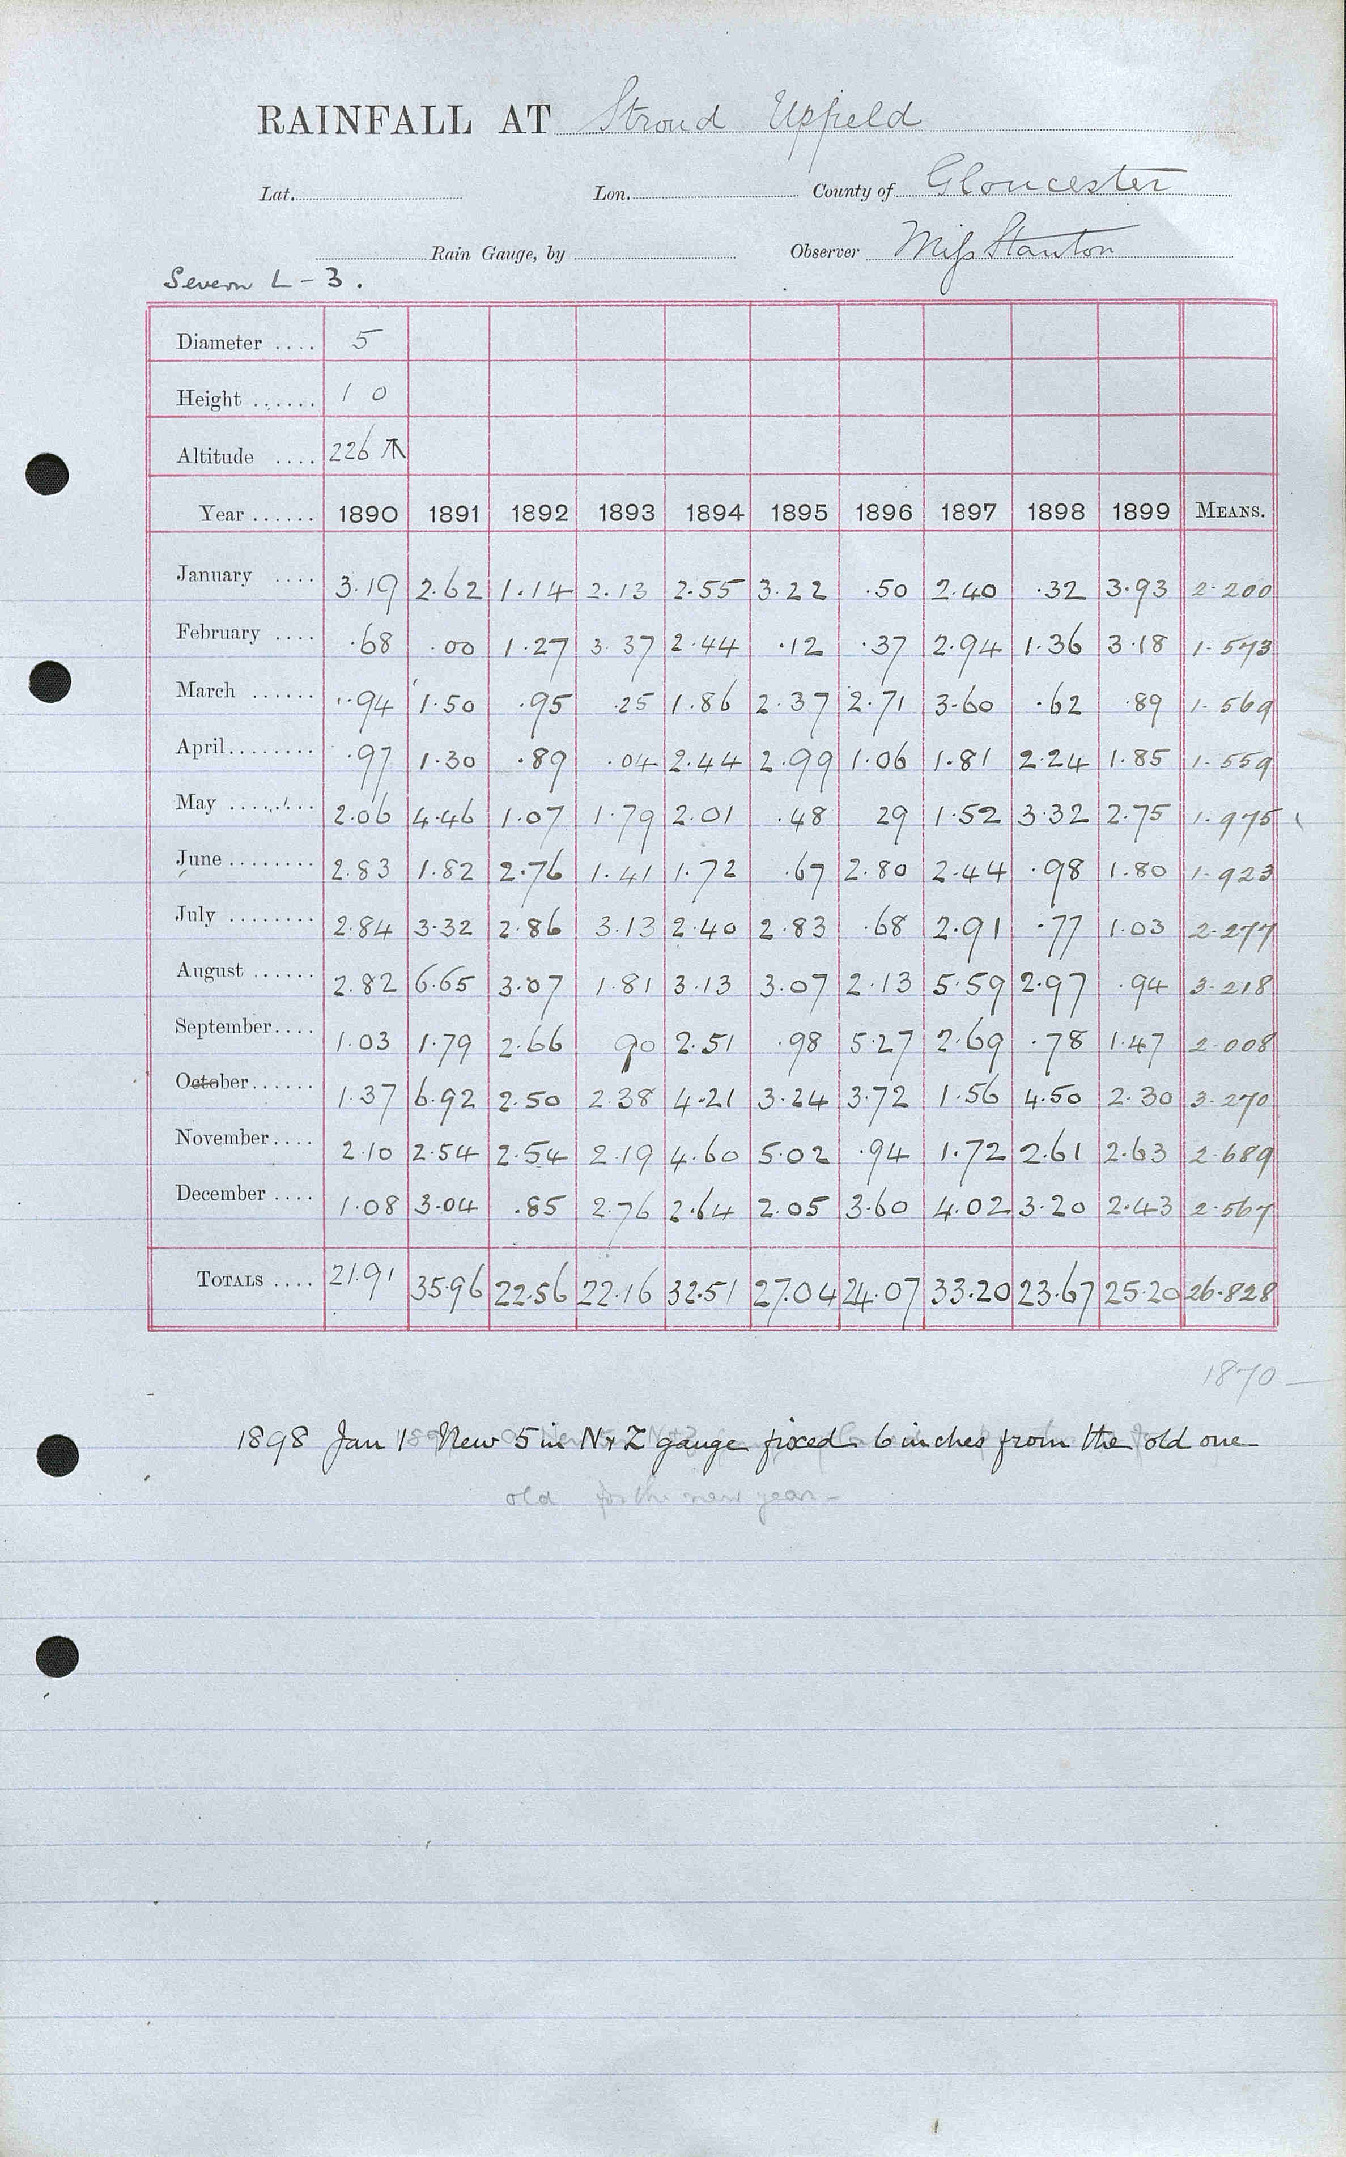 RAINFALL AT Stroud Upfield
Lat. Lon. County of Gloucester
Rain Gauge, by Observer Miss Stanton
Severn L - 3.
Diameter .... 5
Height ...... 1 0
Altitude .... 226
Year ...... 1890 1891 1892 1893 1894 1895 1896 1897 1898 1899 MEANS.
January .... 3.19 2.62 1.14 2.13 2.55 3.22 .50 2.40 .32 3.93 2.200
February .... .68 .00 1.27 3.37 2.44 .12 .37 2.94 1.36 3.18 1.573
March ...... .94 1.50 .95 .25 1.86 2.37 2.71 3.60 .62 .89 1.569
April ........ .97 1.30 .89 .04 2.44 2.99 1.06 1.81 2.24 1.85 1.559
May ........ 2.06 4.46 1.07 1.79 2.01 .48 29 1.52 3.32 2.75 1.975
June ........ 2.83 1.82 2.76 1.41 1.72 .67 2.80 2.44 .98 1.80 1.923
July ........ 2.84 3.32 2.86 3.13 2.40 2.83 .68 2.91 .77 1.03 2.277
August ...... 2.82 6.65 3.07 1.81 3.13 3.07 2.13 5.59 2.97 .94 3.218
September .... 1.03 1.79 2.66 90 2.51 .98 5.27 2.69 .78 1.47 2.008
October ...... 1.37 6.92 2.50 2.38 4.21 3.24 3.72 1.56 4.50 2.30 3.270
November .... 2.10 2.54 2.54 2.19 4.60 5.02 .94 1.72 2.61 2.63 2.689
December .... 1.08 3.04 .85 2.76 2.64 2.05 3.60 4.02 3.20 2.43 2.567
TOTALS .... 21.91 35.96 22.56 22.16 32.51 27.04 24.07 33.20 23.67 25.20 26.828
1870
1898 Jan 1 New 5 in N & Z gauge fixed 6 inches from the old one
old for the new year